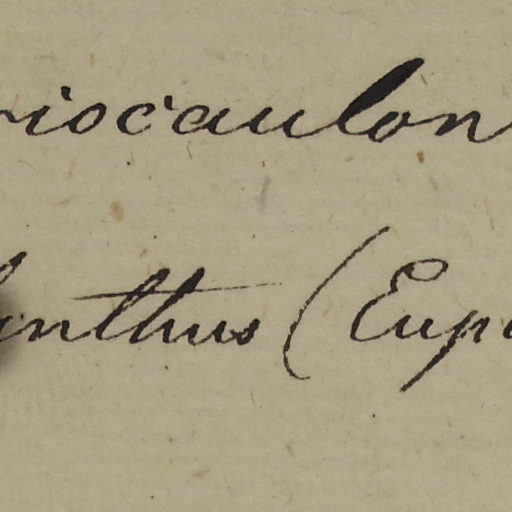 riocaulon
lanthus (Eup